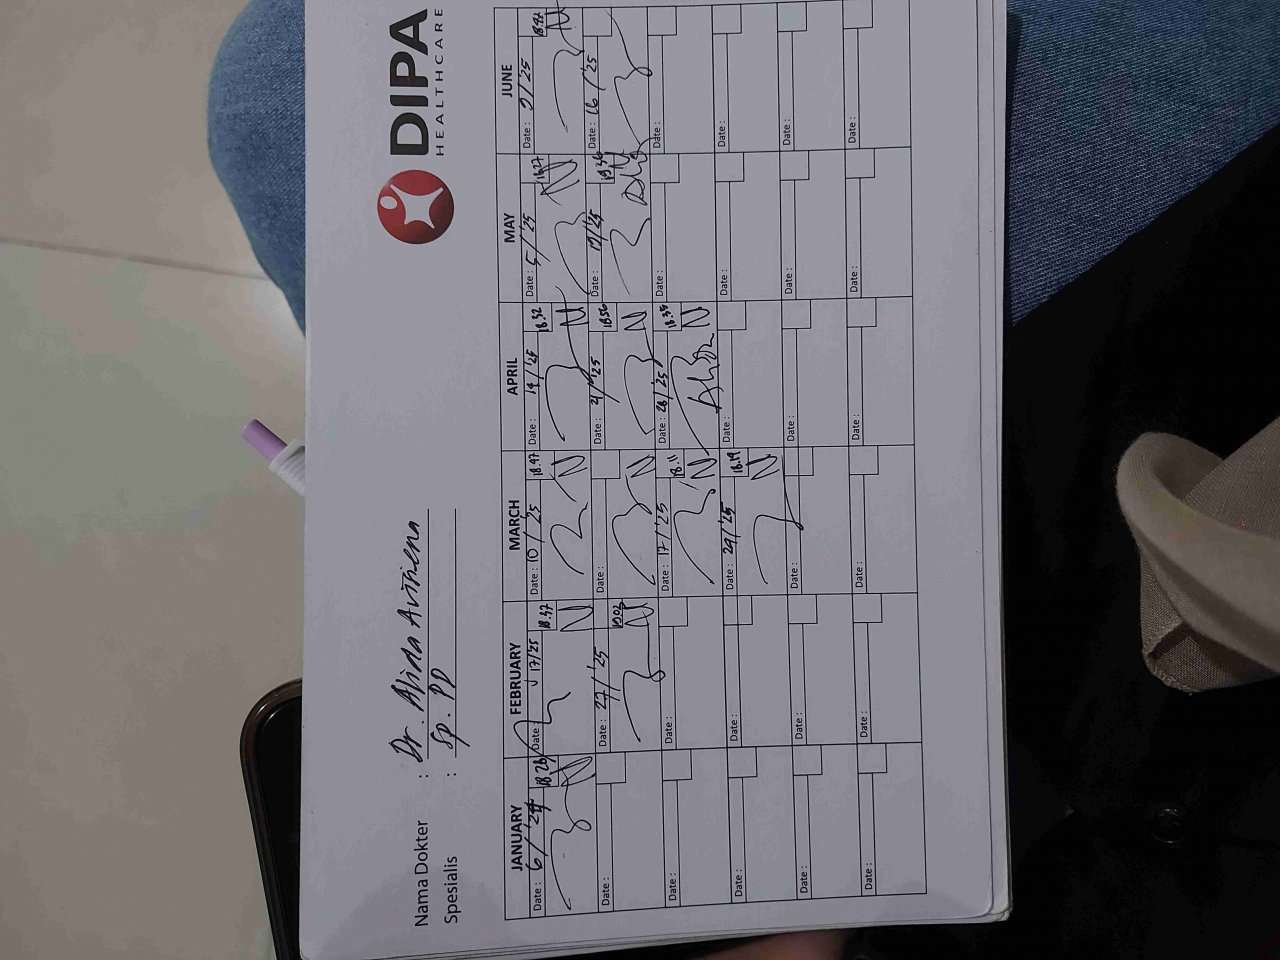 DIPA
HEALTHCARE
Nama Dokter : Dr. Alida Avisena
Spesialis : Sp. PD
JANUARY FEBRUARY MARCH APRIL MAY JUNE
Date : 6/'24 18.26 Date : 17/25 18.37 Date : 10/25 18.47 Date : 14/'25 18.32 Date : 5/'25 18.27 Date : 2/'25 18.42
Date : Date : 27/'25 19.02 Date : Date : 21/'25 18.56 Date : 19/'25 18.46 Date : 16/'25
Date : Date : Date : 17/'25 18.11 Date : 28/'25 18.35 Date : Date :
Date : Date : Date : 24/'25 18.19 Date : Date : Date :
Date : Date : Date : Date : Date : Date :
Date : Date : Date : Date : Date : Date :